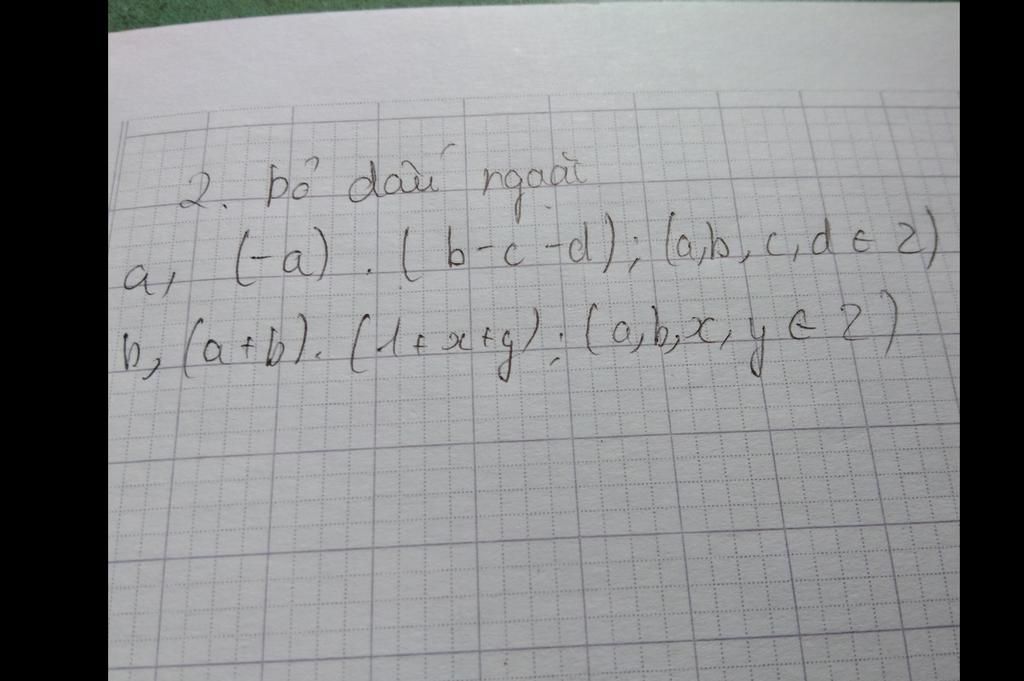 2. bỏ dấu ngoặc
a, (-a) . (b-c-d); (a,b,c,d ∈ Z)
b, (a+b). (1+x+y); (a,b,x,y ∈ Z)